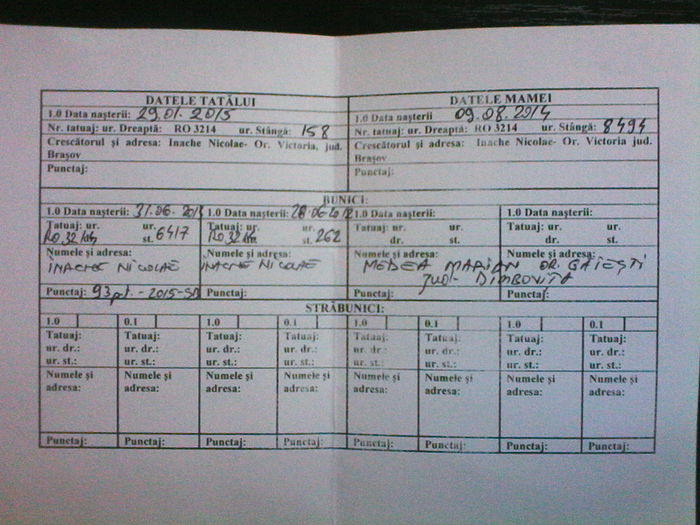 DATELE TATĂLUI
1.0 Data nașterii: 29.01.2015
Nr. tatuaj: ur. Dreaptă: RO 3214 ur. Stângă: 158
Crescătorul și adresa: Inache Nicolae- Or. Victoria, jud.
Brașov
Punctaj:
DATELE MAMEI
1.0 Data nașterii 09.08.2014
Nr. tatuaj: ur. Dreaptă: RO 3214 ur. Stângă: 8494
Crescătorul și adresa: Inache Nicolae- Or. Victoria jud.
Brașov
Punctaj:
BUNICI:
1.0 Data nașterii: 31.06.
Tatuaj: ur. ur.
dr. st. 6417
Numele și adresa:
INACHE NICOLAE
Punctaj: 93 pt. - 2015 -
1.0 Data nașterii:
Tatuaj: ur. ur.
st. 262
Numele și adresa:
INACHE NICOLAE
Punctaj:
1.0 Data nașterii:
Tatuaj: ur. ur.
dr. st.
Numele și adresa:
MEDEA MARIAN OR. GĂIEȘTI
JUD- DIMBOVIȚA
Punctaj:
1.0 Data nașterii:
Tatuaj: ur. ur.
dr. st.
Numele și adresa:
Punctaj:
STRĂBUNICI:
1.0 0.1 1.0 0.1 1.0 0.1 1.0 0.1
Tatuaj: Tatuaj: Tatuaj: Tatuaj: Tatuaj: Tatuaj: Tatuaj: Tatuaj:
ur. dr.: ur. dr.: ur. dr.: ur. dr.: ur. dr.: ur. dr.: ur. dr.: ur. dr.:
ur. st.: ur. st.: ur. st.: ur. st.: ur. st.: ur. st.: ur. st.: ur. st.:
Numele și Numele și Numele și Numele și Numele și Numele și Numele și Numele și
adresa: adresa: adresa: adresa: adresa: adresa: adresa: adresa:
Punctaj: Punctaj: Punctaj: Punctaj: Punctaj: Punctaj: Punctaj: Punctaj: